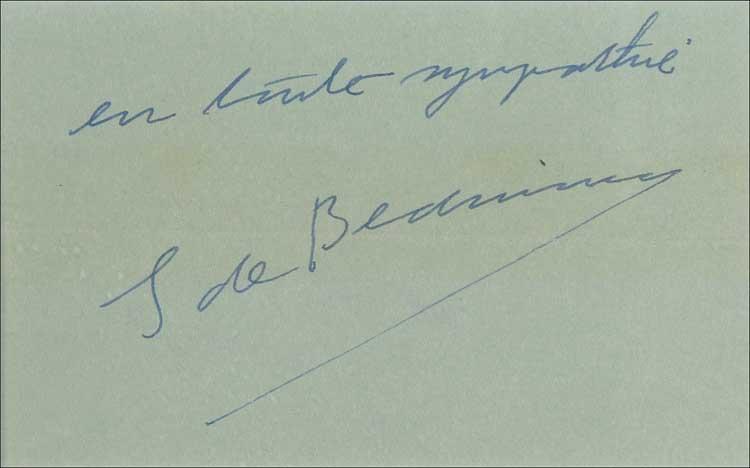 en toute sympathie
S de Bedriaga